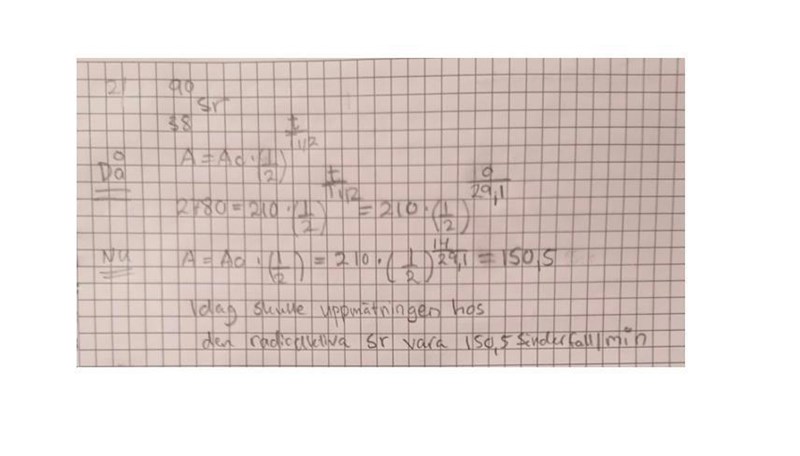 2) 90
Sr
38
Då A = A0 · (1/2)^(t/T1/2)
2780 = 210 · (1/2)^(t/T1/2) = 210 · (1/2)^(0/29,1)
Nu A = A0 · (1/2) = 210 · (1/2)^(14/29,1) = 150,5
Idag skulle uppmätningen hos
den radioaktiva Sr vara 150,5 sönderfall/min